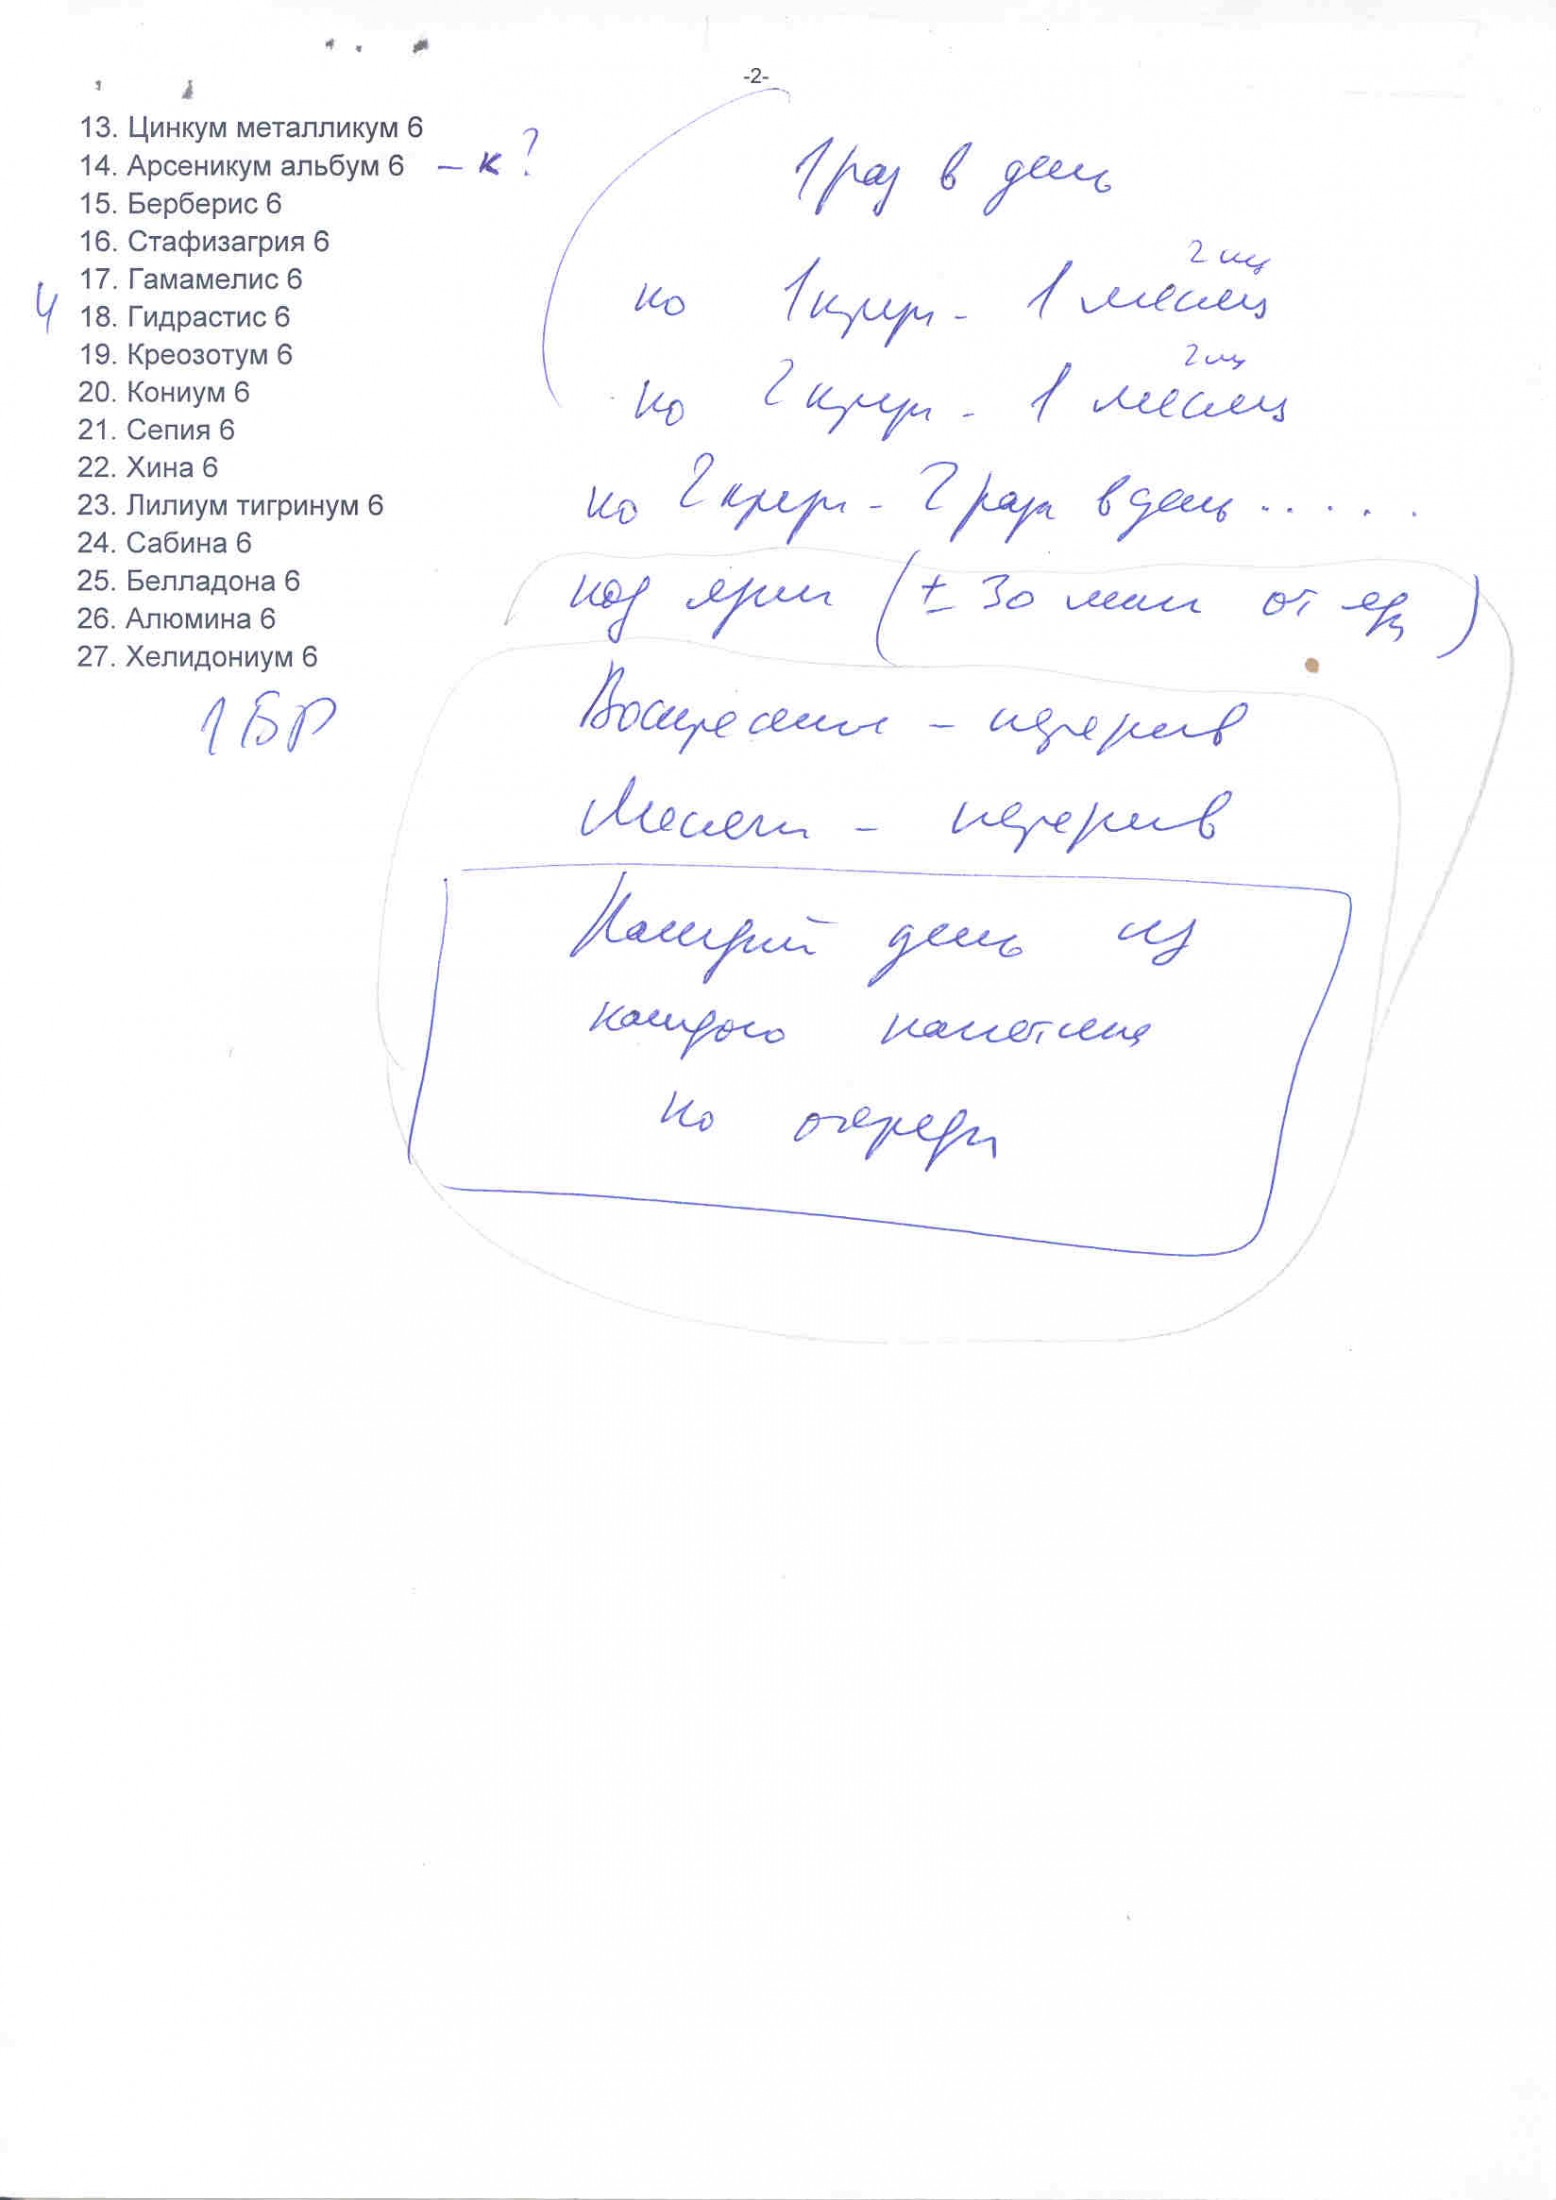 -2-
13. Цинкум металликум 6
14. Арсеникум альбум 6 – к?
15. Берберис 6
16. Стафизагрия 6
17. Гамамелис 6
4
18. Гидрастис 6
19. Креозотум 6
20. Кониум 6
21. Сепия 6
22. Хина 6
23. Лилиум тигринум 6
24. Сабина 6
25. Белладона 6
26. Алюмина 6
27. Хелидониум 6
1 раз в день
по 1 круп - 1 месяц
по 2 круп - 1 месяц
по 2 круп - 2 раза в день . . . . .
под язык (± 30 мин от еды)
Воскресение – перерыв
Месячн – перерыв
Каждый день из
каждого пакетика
по очереди